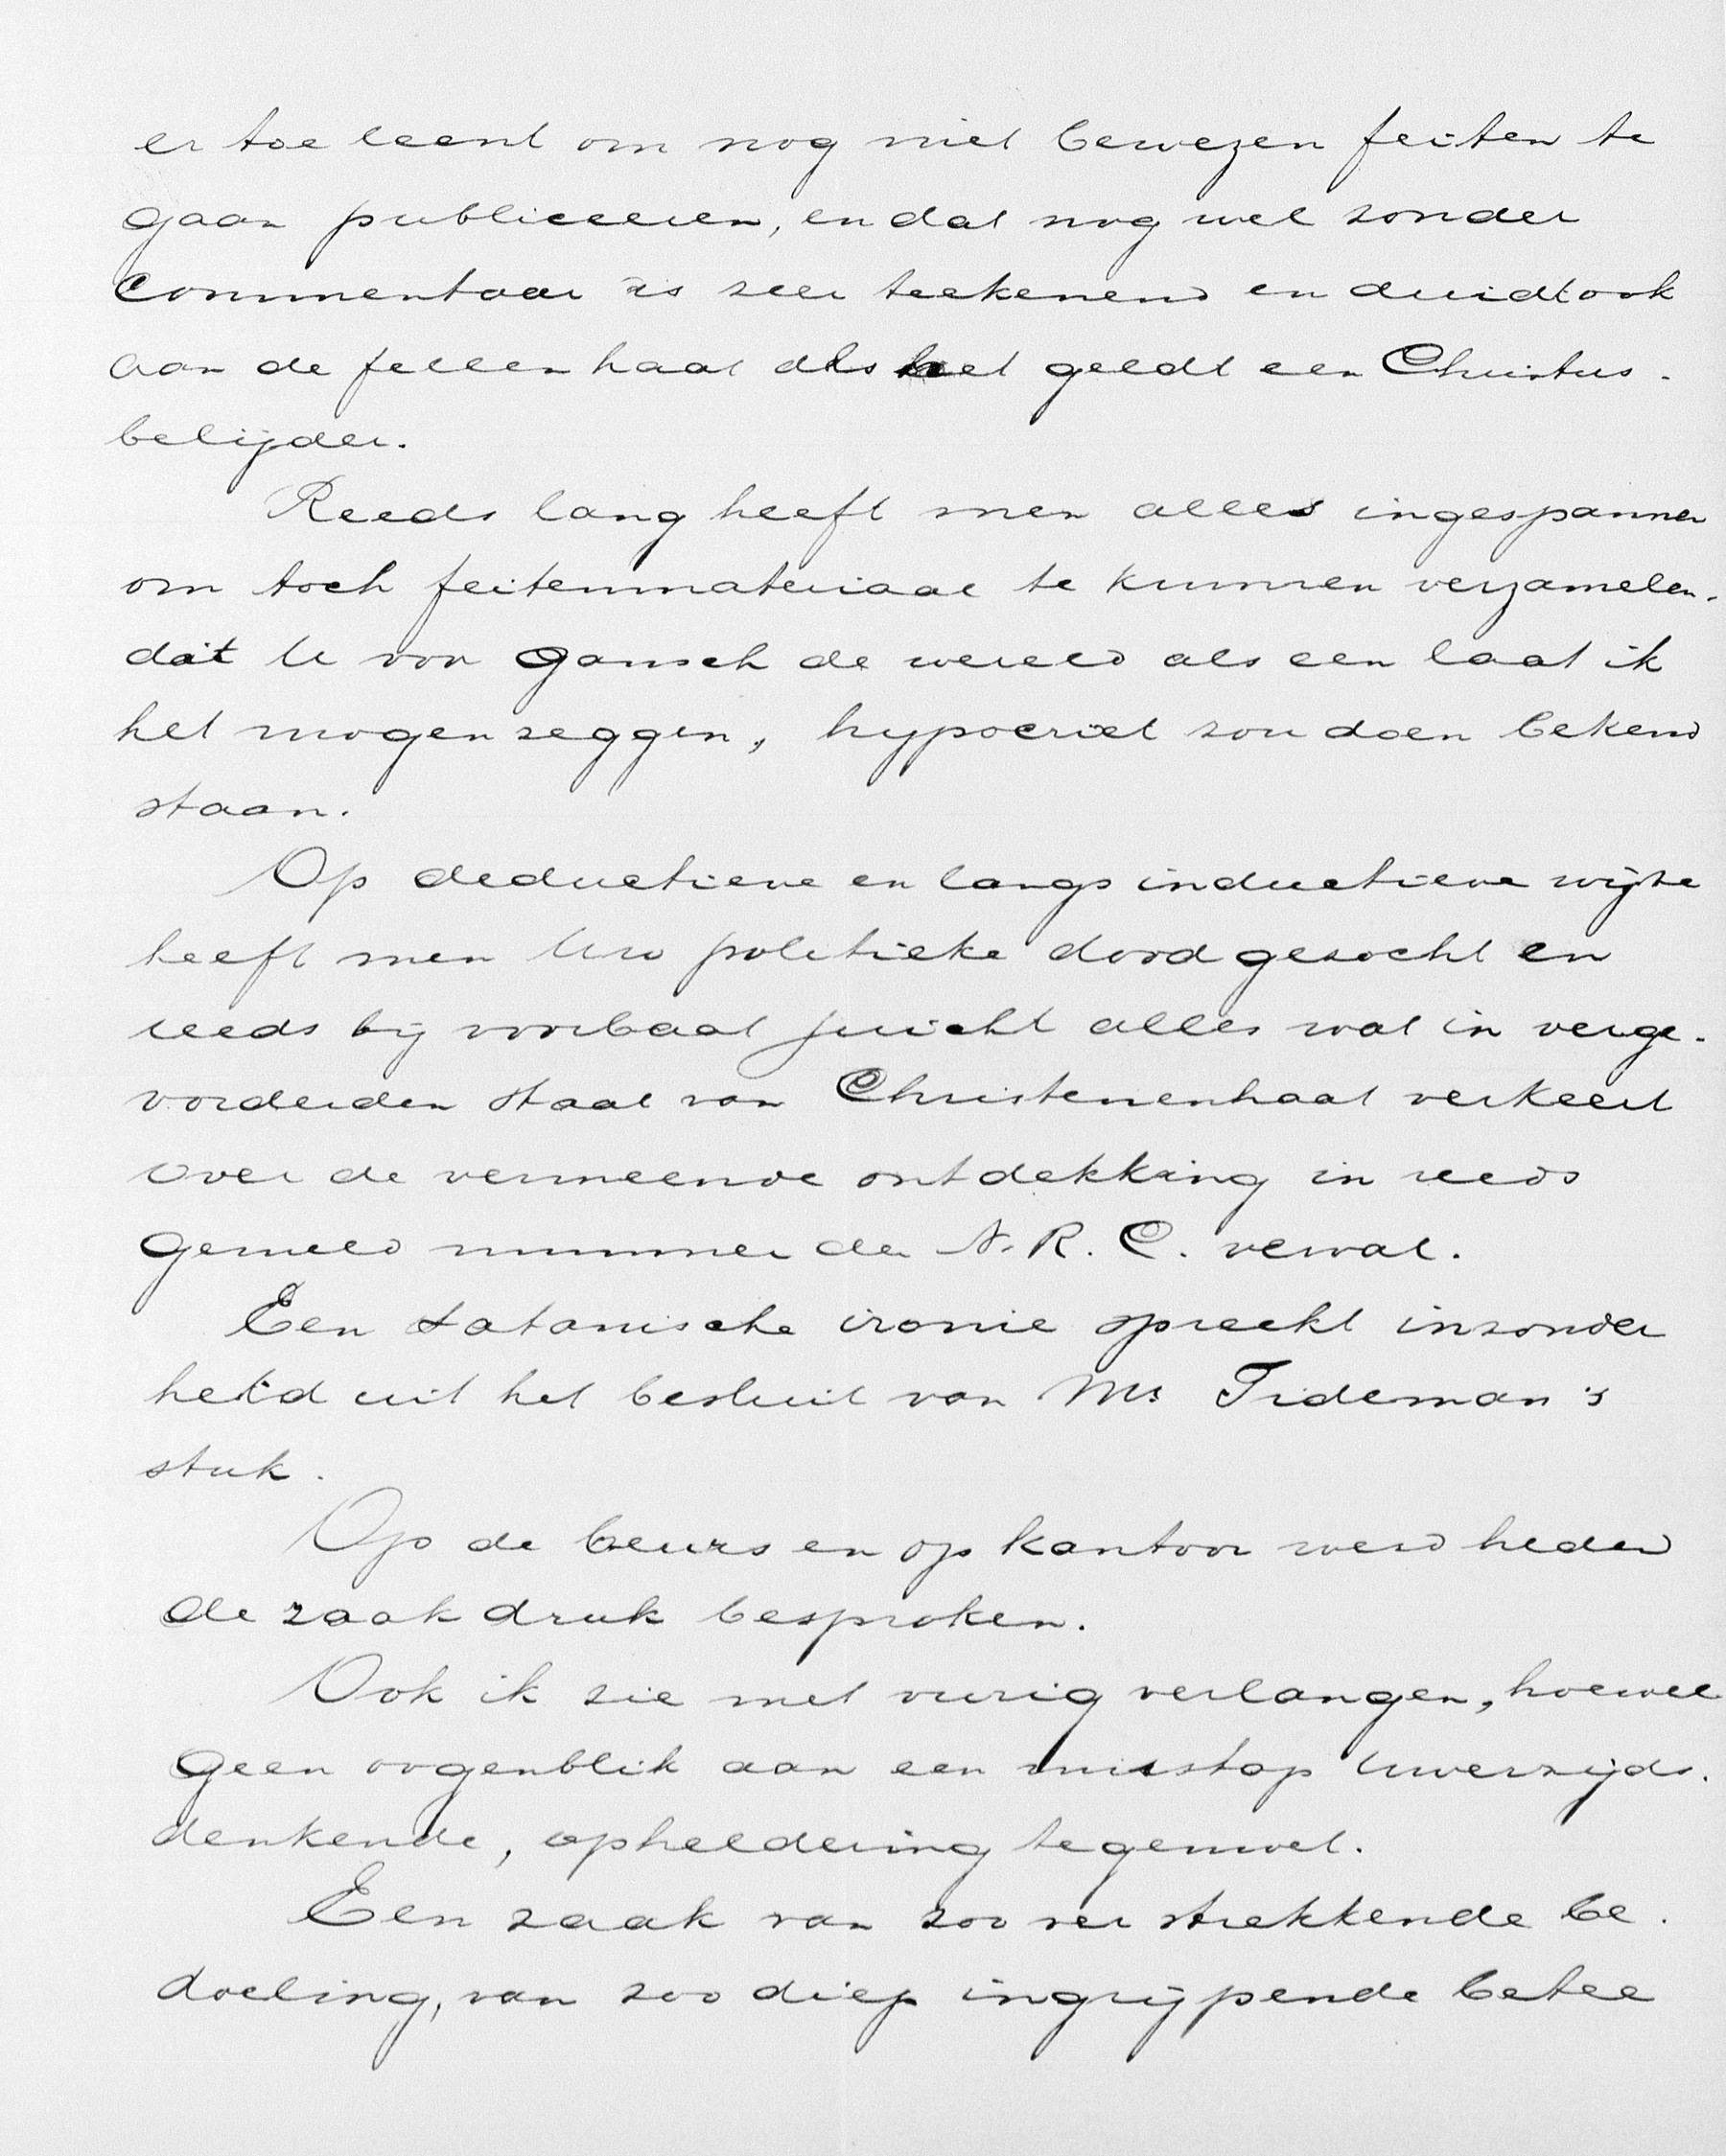 er toe leent om nog niet bewezen feiten te
gaan publiceeren, en dat nog wel zonder
commentaar is zeer teekenend en duidt ook
aan de fellen haat als het geldt een Christus-
belijder.
Reeds lang heeft men alles ingespannen
om toch feitenmateriaal te kunnen verzamelen.
dat U voor gansch de wereld als een laat ik
het mogen zeggen, hypocriet zou doen bekend
staan.
Op deductieve en langs inductieve wijze
heeft men Uw politieke dood gezocht en
reeds bij voorbaat juicht alles wat in verge-
vorderden staat van Christenenhaat verkeert
over de vermeende ontdekking in reeds
gemeld nummer der N.R.C. vervat.
Een satanische ironie spreekt inzonder
heid uit het besluit van Mr Tideman's
stuk.
Op de beurs en op kantoor werd heden
de zaak druk besproken.
Ook ik zie met vurig verlangen, hoewel
geen oogenblik aan een misstap Uwerzijds.
denkende, opheldering tegemoet.
Een zaak van zoo ver strekkende be-
doeling, van zoo diep ingrijpende betee